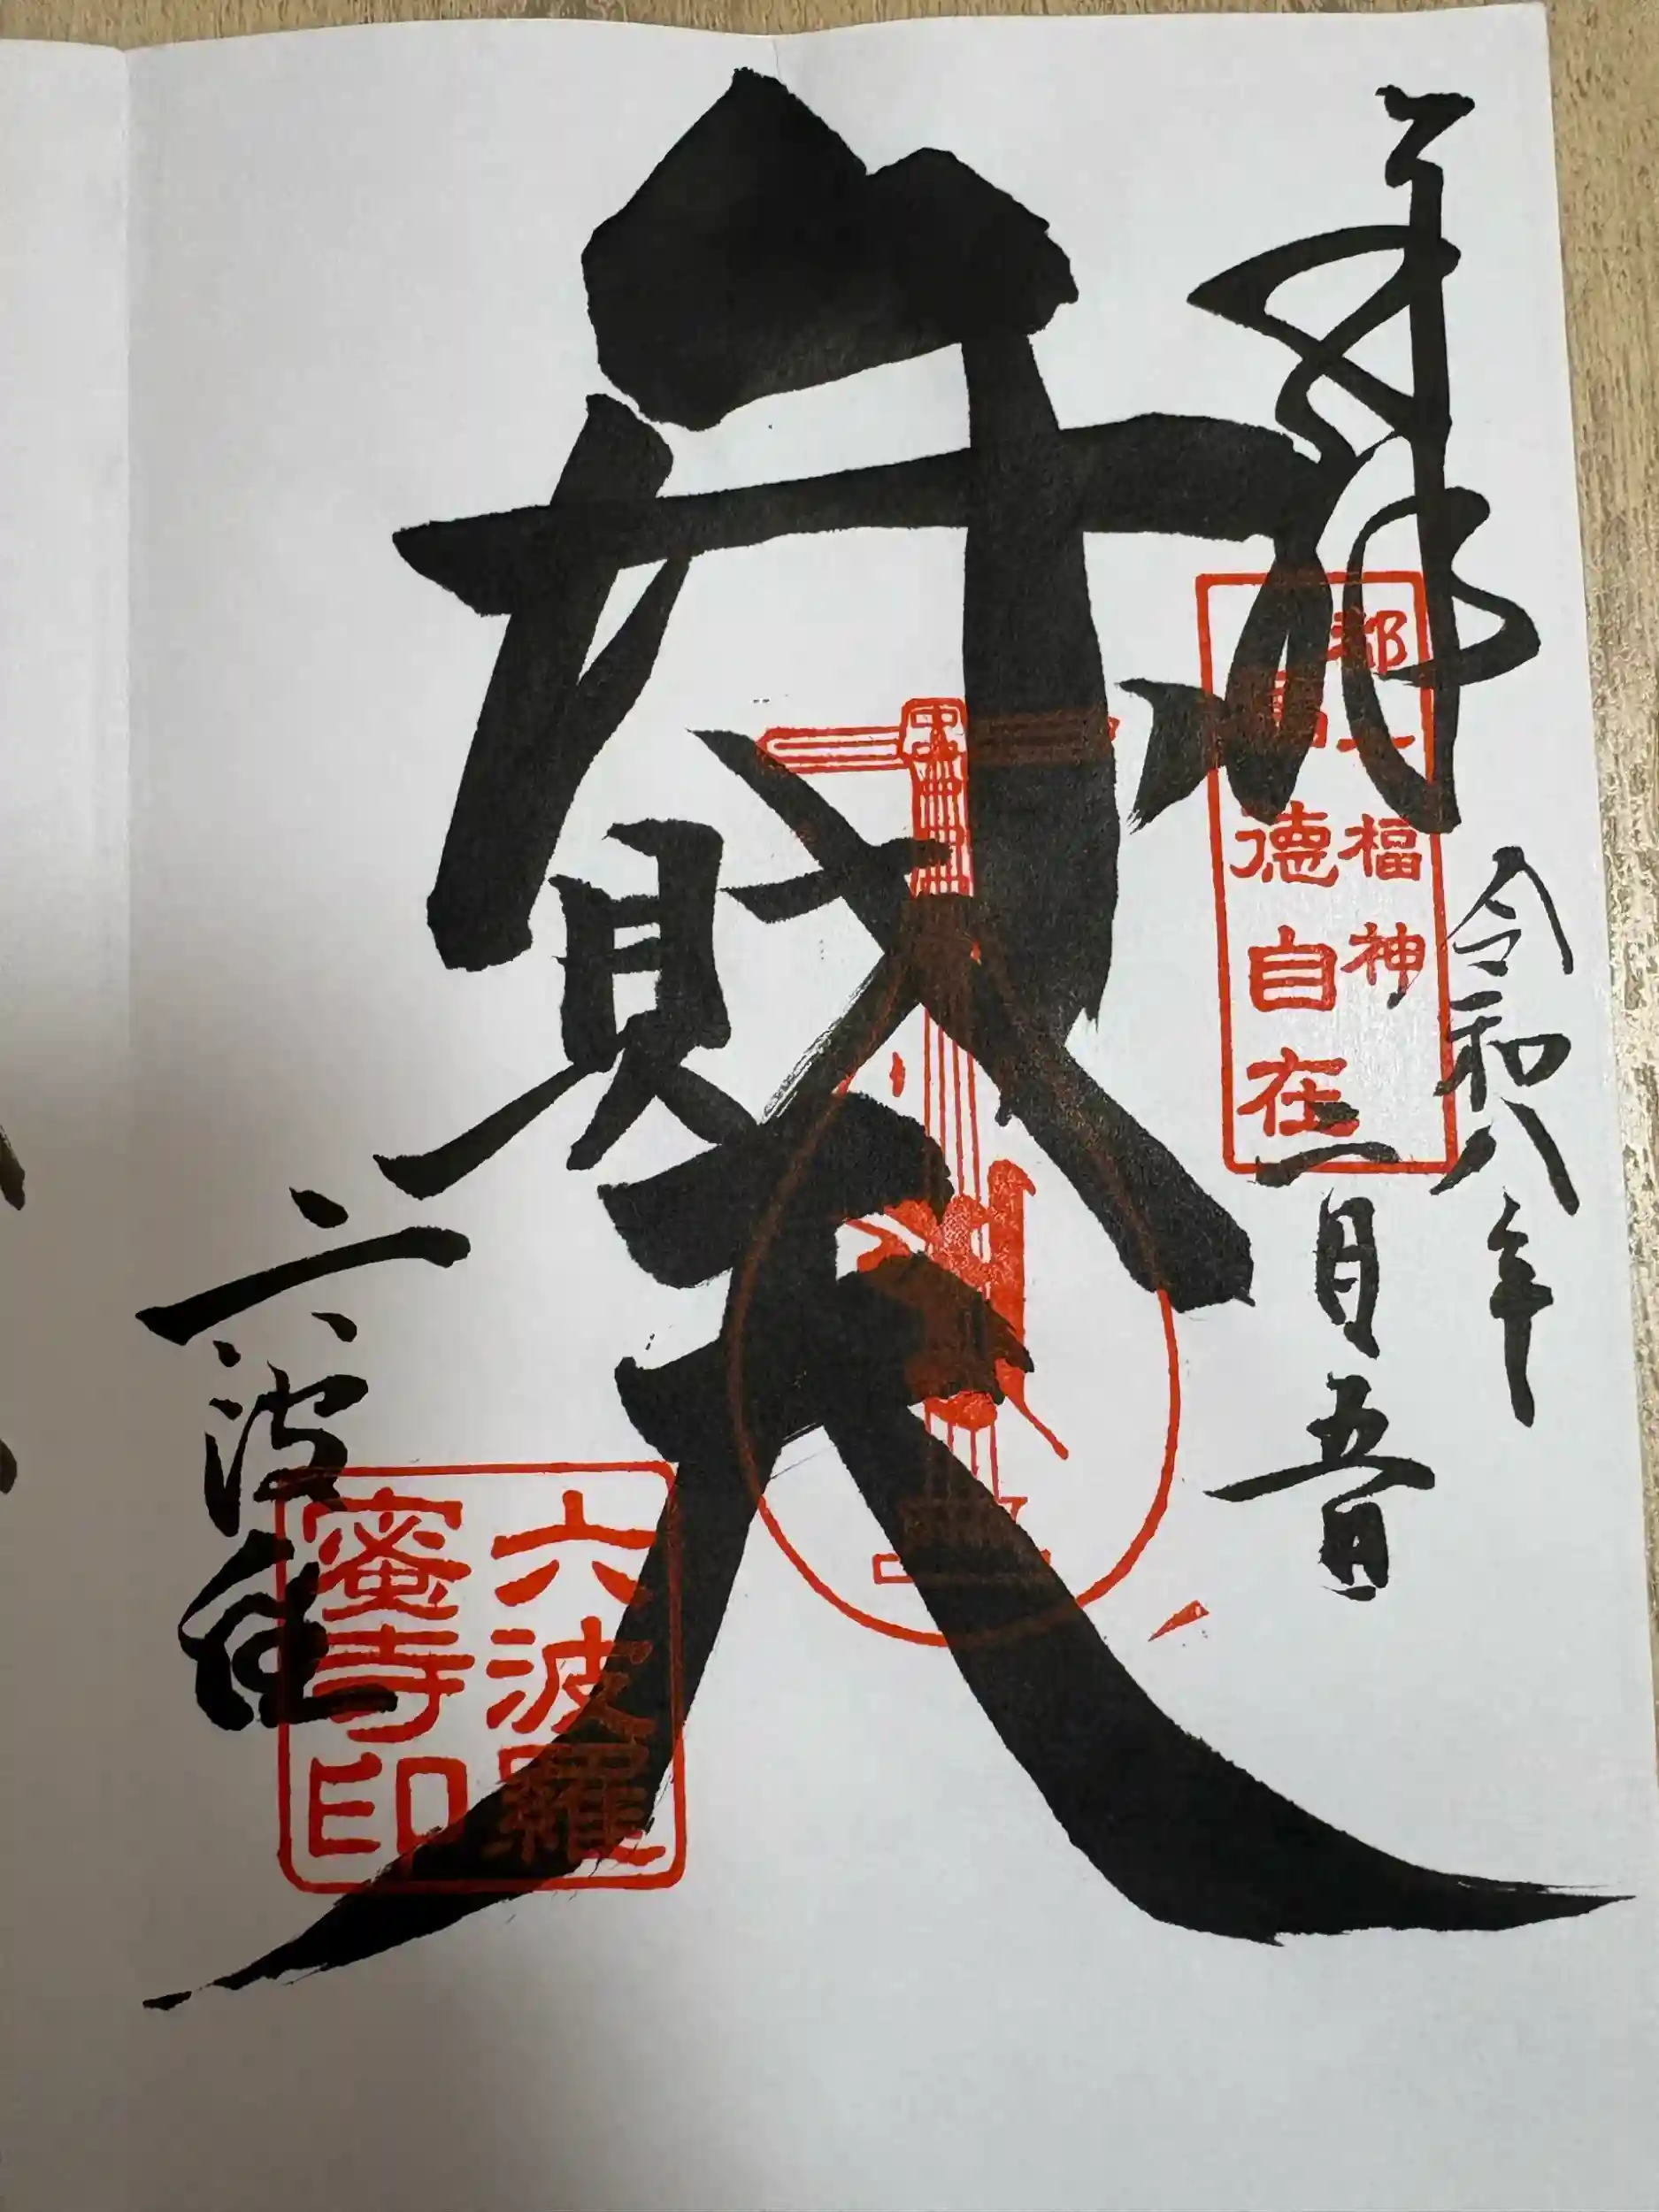 奉拝
令和八年
二月五日
都七福神
福徳自在
弁財天
六波
六波羅
蜜寺印